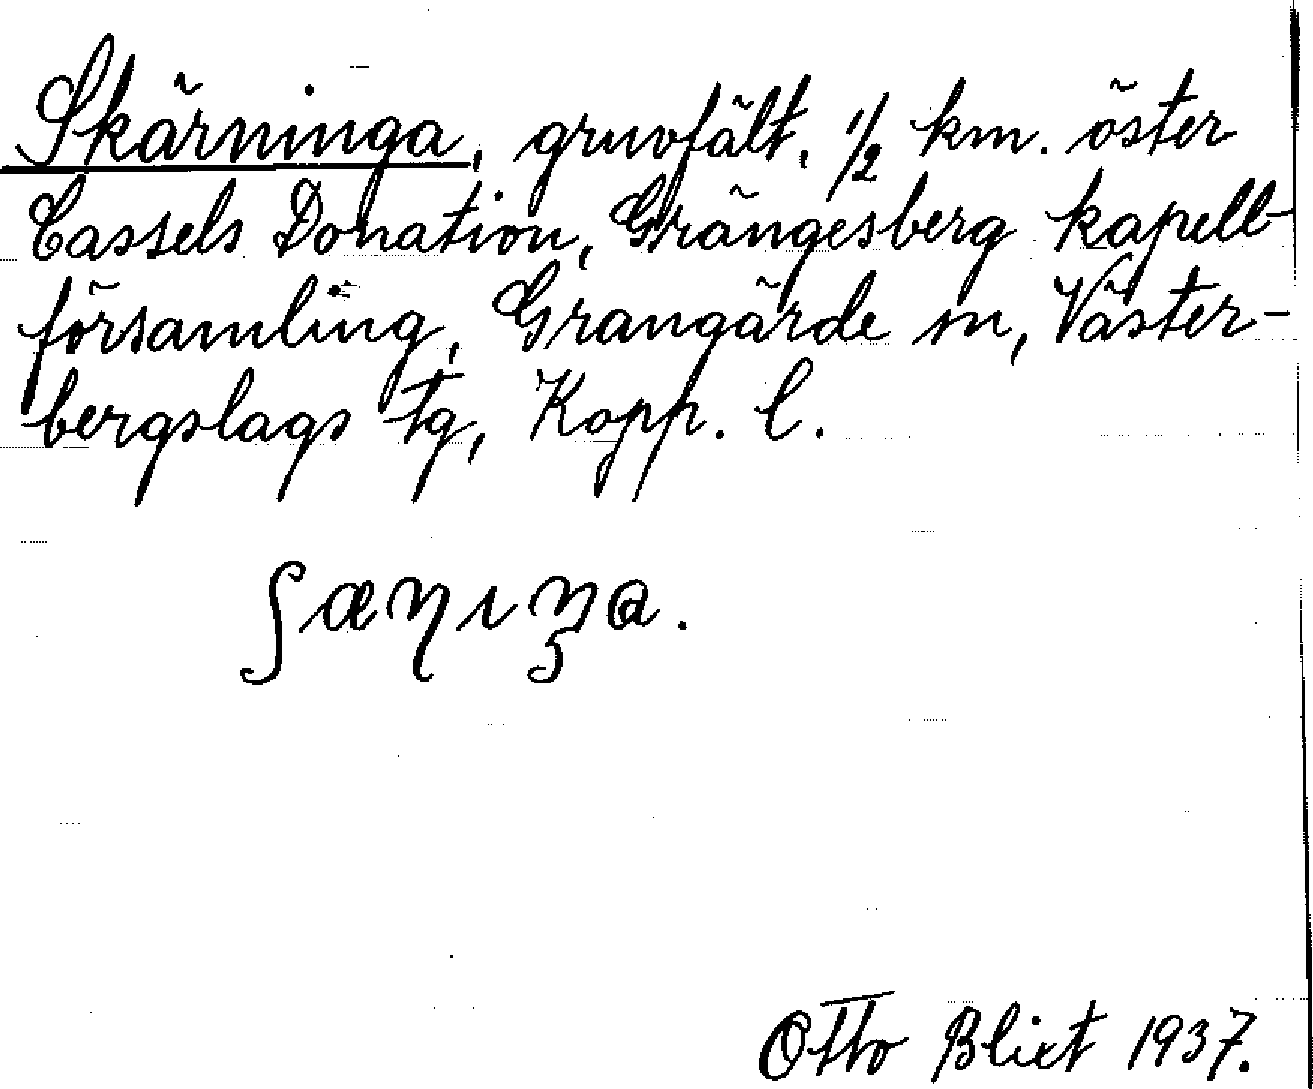 Skärninga, gruvfält, 1/2 km. öster
Cassels Donation, Grängesberg kapell-
församling, Grangärde sn, Väster-
bergslags tg, Kopp. l.
ʃæɳɪŋa.
Otto Blixt 1937.